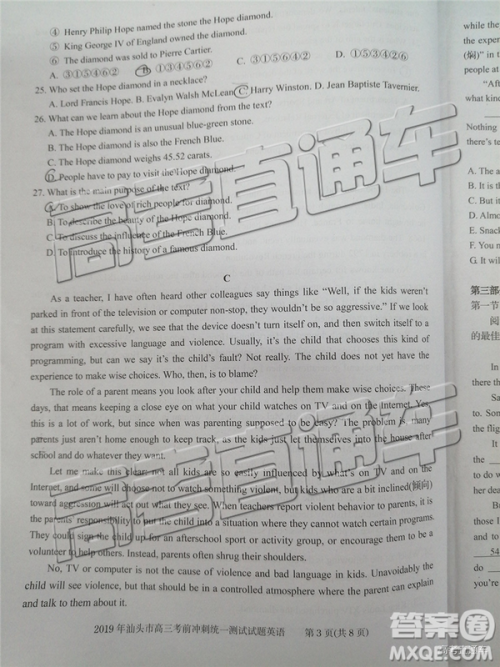 ④ Henry Philip Hope named the stone the Hope diamond.
⑤ King George IV of England owned the diamond.
⑥ The diamond was sold to Pierre Cartier.
25. Who set the Hope diamond in a necklace?
A. Lord Francis Hope. B. Evalyn Walsh McLean. C. Harry Winston. D. Jean Baptiste Tavernier.
26. What can we learn about the Hope diamond from the text?
A. The Hope diamond is an unusual blue-green stone.
B. The Hope diamond is also the French Blue.
C. The Hope diamond weighs 45.52 carats.
D. People have to pay to visit the Hope diamond.
27. What is the main purpose of the text?
A. To show the love of rich people for diamond.
B. To describe the beauty of the Hope diamond.
C. To discuss the influence of the French Blue.
D. To introduce the history of a famous diamond.
C
As a teacher, I have often heard other colleagues say things like “Well, if the kids weren't
parked in front of the television or computer non-stop, they wouldn't be so aggressive.” If we look
at this statement carefully, we see that the device doesn't turn itself on, and then switch itself to a
program with excessive language and violence. Usually, it's the child that chooses this kind of
programming, but can we say it's the child's fault? Not really. The child does not yet have the
experience to make wise choices. Who, then, is to blame?
The role of a parent means you look after your child and help them make wise choices. These
days, that means keeping a close eye on what your child watches on TV and on the Internet. Yes,
this is a lot of work, but since when was parenting supposed to be easy? The problem is, many
parents just aren't home enough to keep track, as the kids just let themselves into the house after
school and do whatever they want.
Let me make this clear: not all kids are so easily influenced by what's on TV and on the
Internet, and some will choose not to watch something violent, but kids who are a bit inclined(倾向)
toward aggression will act out what they've seen. When teachers report violent behavior to parents, it is
the parents' responsibility to put the child into a situation where they cannot watch certain programs.
They could sign the child up for an afterschool sport or activity group, or encourage them to be a
volunteer to help others. Instead, parents often shrug their shoulders.
No, TV or computer is not the cause of violence and bad language in kids. Unavoidably the
child will see violence, but that should be in a controlled atmosphere where the parent can explain
and talk to them about it.
2019 年汕头市高三考前冲刺统一测试试题英语 第 3 页(共 8 页)
高考直通车
高考直通车
like a
the exper
people at
“Af
what kind
Nothing
there's te
A. The
B. You
C. But it
D. Also
E. Snack
F. You
G. It will
第三部
第一节
的最佳
In
Sa
to. Son
the flig
In
54
答案圈
MXQE.COM